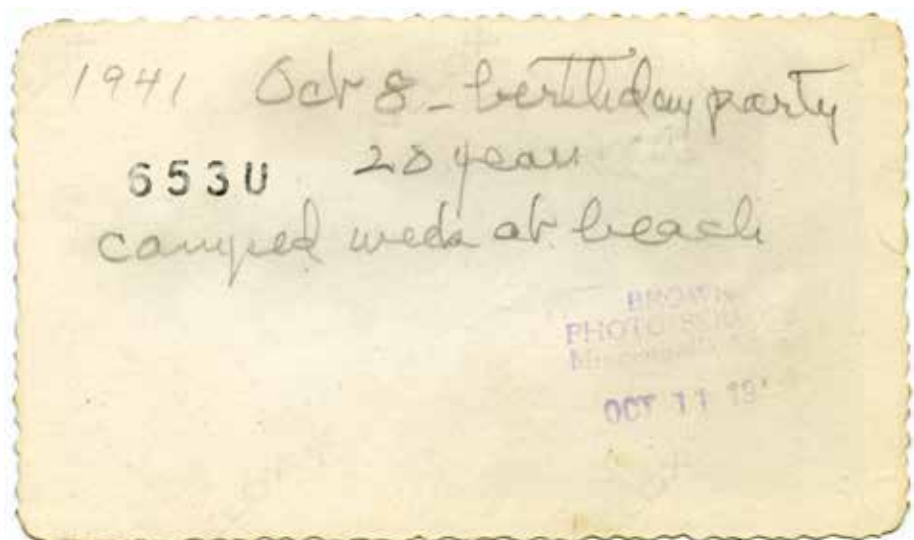 1941 Oct 8 - birthday party
653U 28 year
camped week at beach
BROWN
PHOTO
OCT 11 19